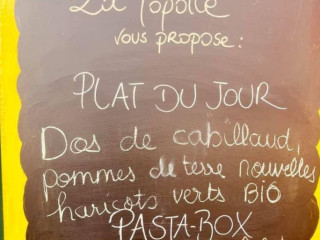 La Popote
vous propose:
PLAT DU JOUR
Dos de cabillaud,
pommes de terre nouvelles
haricots verts BIO
PASTA-BOX